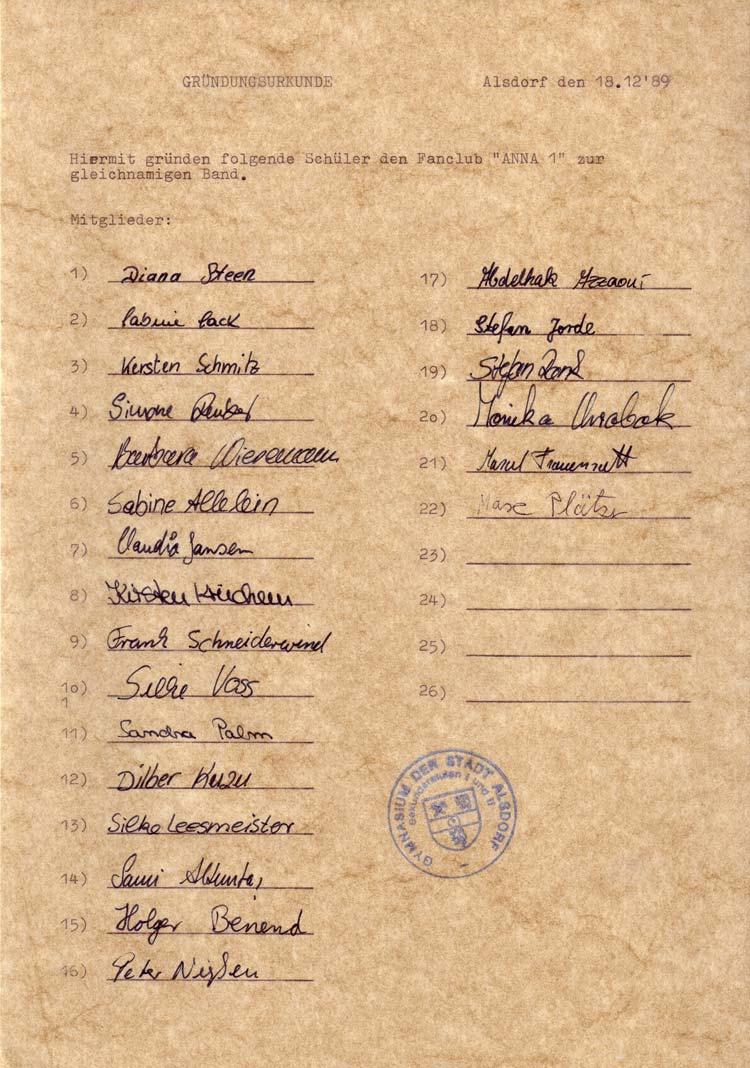 GRÜNDUNGSURKUNDE
Alsdorf den 18.12'89
Hiermit gründen folgende Schüler den Fanclub "ANNA 1" zur
gleichnamigen Band.
Mitglieder:
1) Diana Steen
2) Sabine Sack
3) Kersten Schmitz
4) Simone
5) Barbara Wienemann
6) Sabine Allelein
7) Claudia Jansen
8) Kirsten
9) Frank Schneiderwind
10) Silke Voss
1
11) Sandra Palm
12) Dilber Kuzu
13) Silko Leesmeister
14) Sami
15) Holger Benend
16) Peter Nißen
17) Abdelhak Azzaoui
18) Stefan Jorde
19) Stefan
20) Monika
21)
22) Marc
23)
24)
25)
26)
GYMNASIUM DER STADT ALSDORF
Sekundarstufen I und II